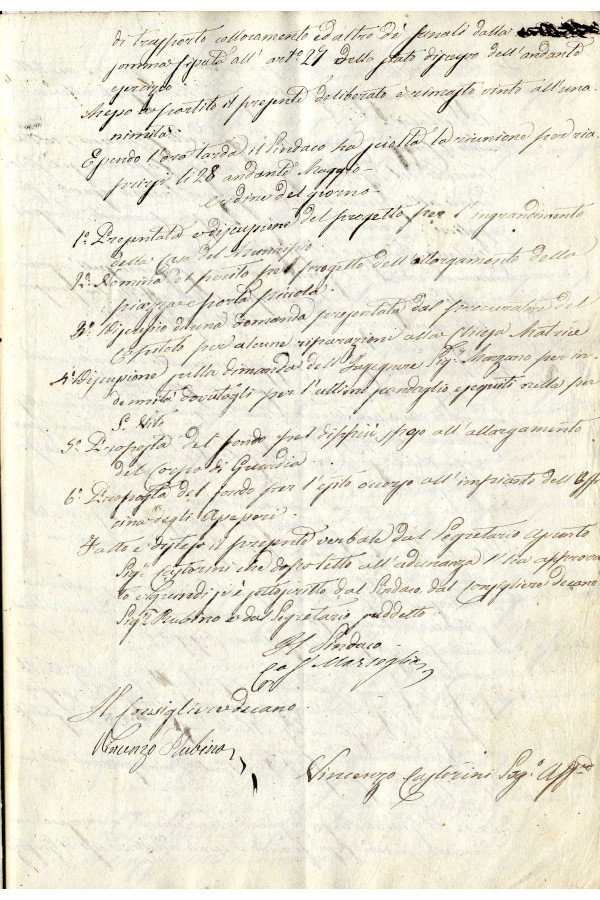 di trasporto collocamento ed altro de' fanali dalla
somma fissata all' arto. 27 dello stato discusso dell'andante
esercizio
Messo a partito il presente deliberato è rimasto vinto all'una-
nimità.
Essendo l'ora tarda il Sindaco ha sciolta la riunione per ria-
prirsi li 28 andante Maggio
Ordine del giorno
1° Presentata e discussione del progetto per l'ingrandimento
della Casa del Municipio
2° Nomina del perito pel progetto dell'allargamento della
piazza e porta piccola.
3° Discussio di una domanda presentata dal procuratore del
Capitolo per alcune riparazioni alla Chiesa Matrice
4° Discussione sulla dimanda dell'Ingegnere Sigr. Marzano per in-
dennità dovutagli per l'ultimo scandaglio eseguiti nella per
S. Vito
5° Proposta del fondo pel dippiù speso all'allargamento
del Corpo di Guardia
6° Proposta del fondo per l'esito occorso all'impianto dell'Offi
cina degli Assessori.
Fatto e disteso il presente verbale dal Segretario
Sigr. Castorini che dopo letto all'adunanza l'ha approva
to e quindi si è sottoscritto dal Sindaco dal Consigliere decano
Sigr. Rubino e dal Segretario suddetto.
Il Sindaco
Marseglia
Il Consigliere decano
Vincenzo Rubino
Vincenzo Castorini Segro.